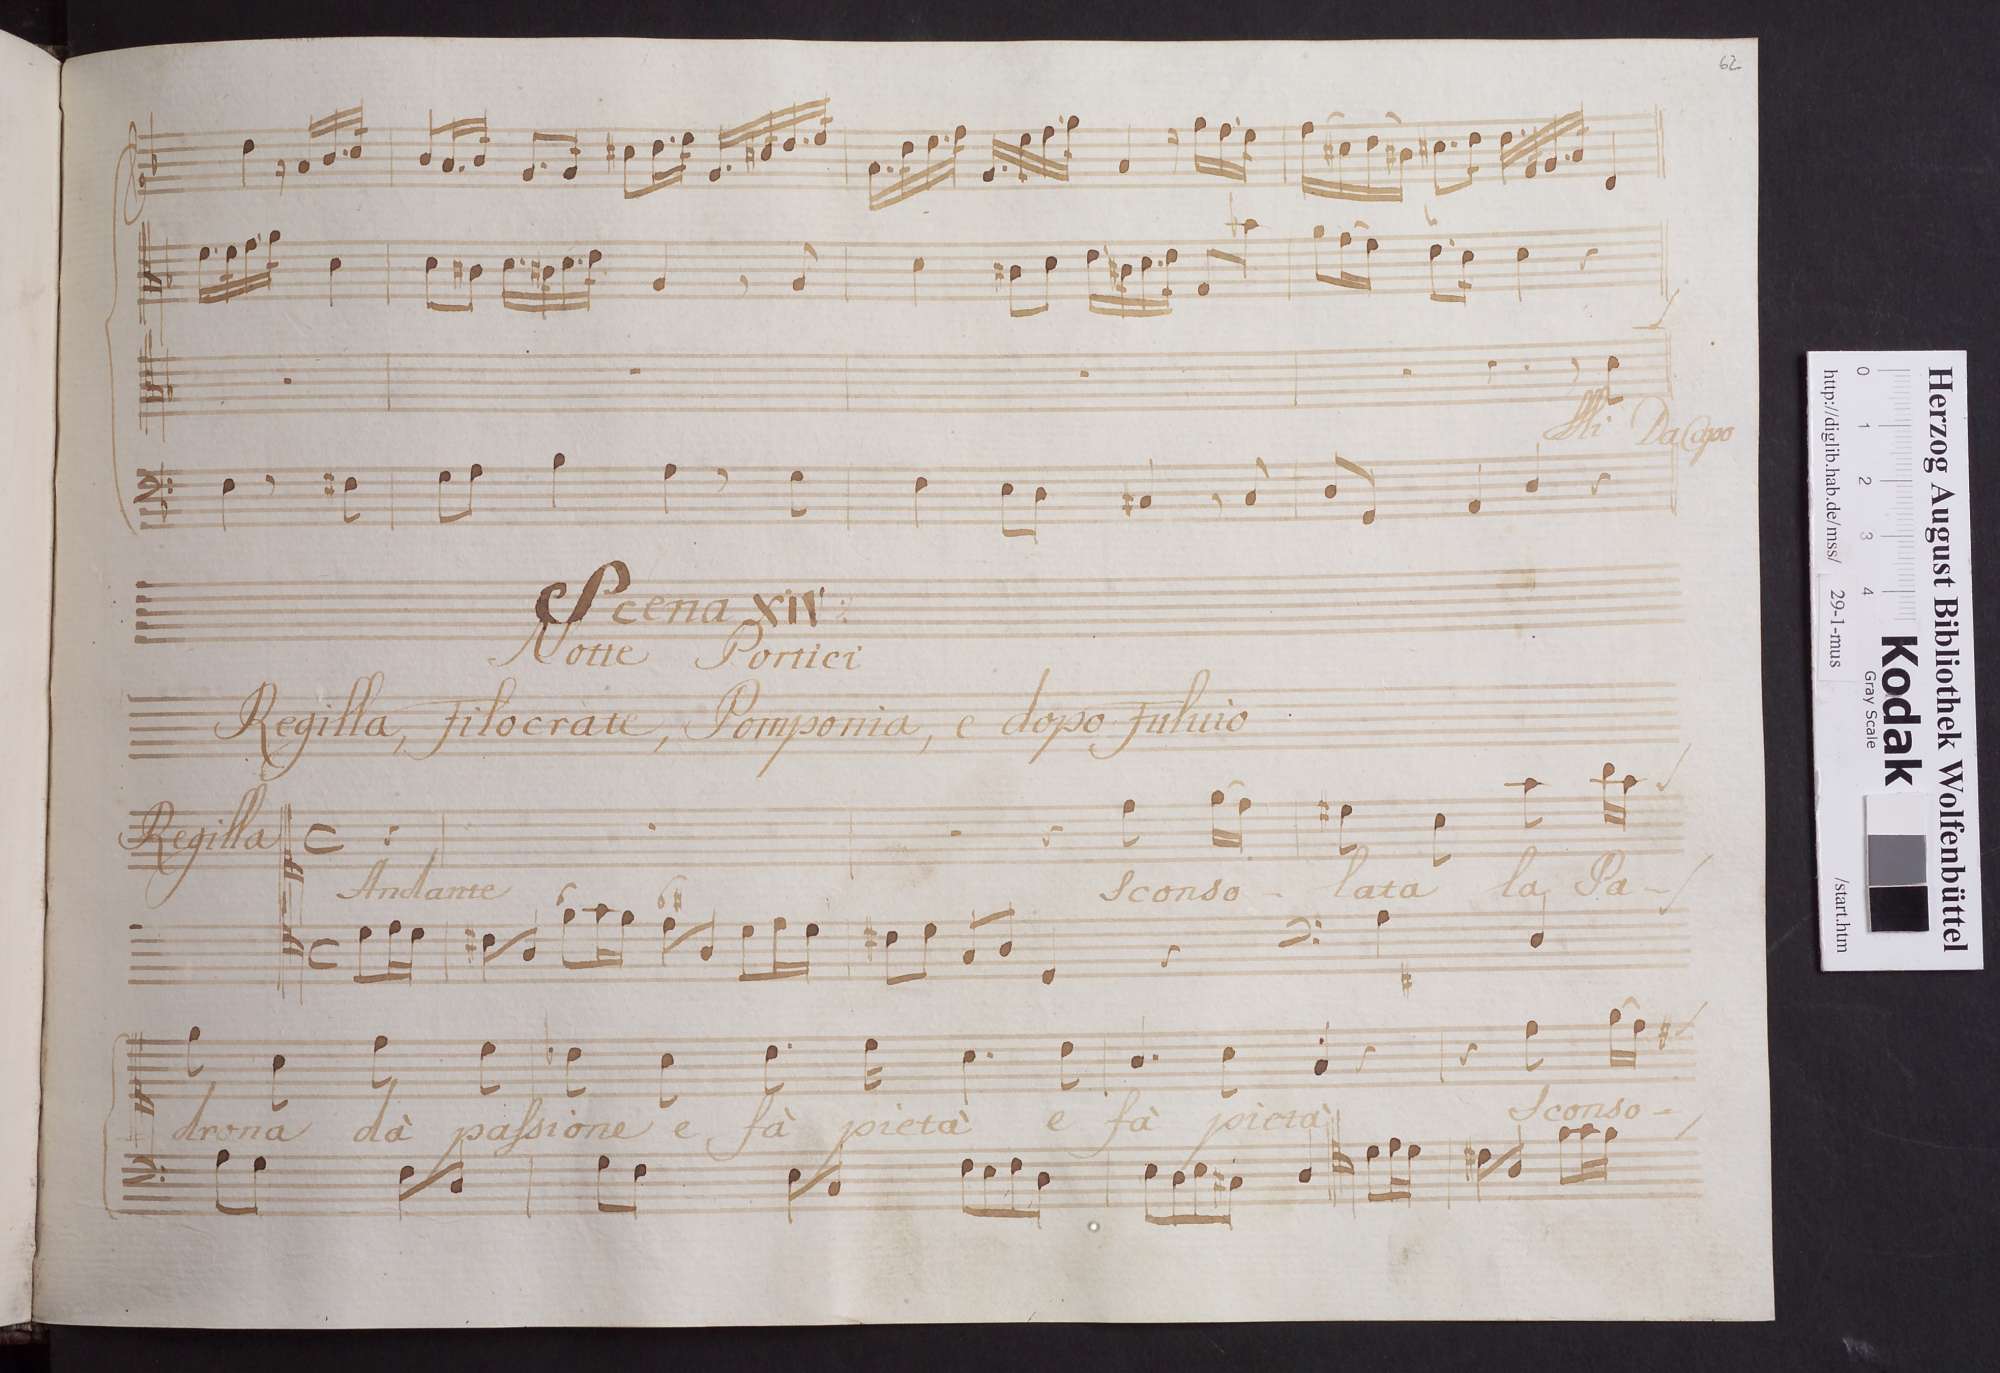 62
Mi Da Capo
Scena XIV
Notte Portici
Regilla, Filocrate, Pomponia, e dopo Fuluio
Regilla
Andante
Sconso - lata la Pa -
6 6#
drona dà passione e fà pietà e fà pietà Sconso -
Herzog August Bibliothek Wolfenbüttel
Kodak
Gray Scale
0 1 2 3 4
http://diglib.hab.de/mss/ 29-1-mus /start.htm